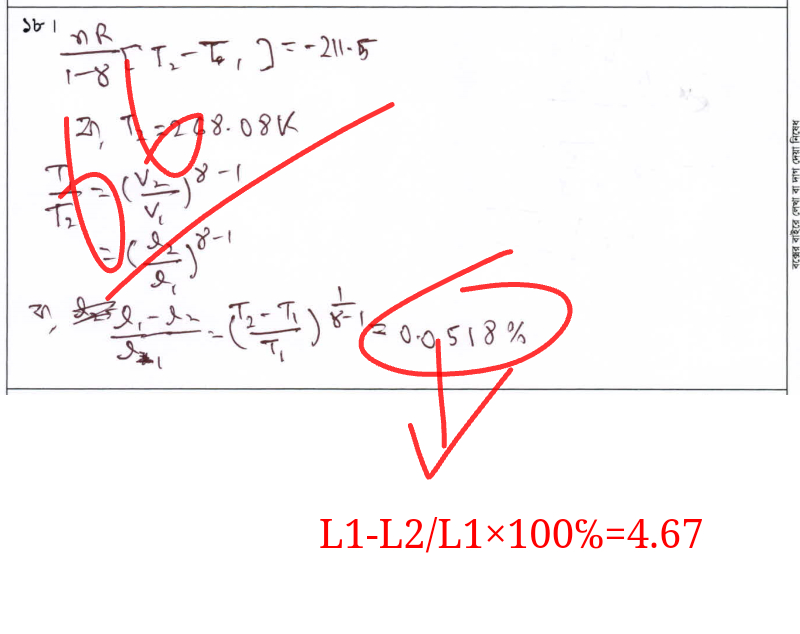 ১৮।
nR/1-γ [T₂-T₁] = -211.5
বা, T₂ = 268.08K
T₁/T₂ = (V₂/V₁)^γ-1
= (l₂/l₁)^γ-1
বা, l₁-l₂/l₁ = (T₂-T₁/T₁)^1/γ-1 = 0.0518%
L1-L2/L1×100%=4.67
বক্সের বাইরে লেখা বা দাগ দেয়া নিষেধ